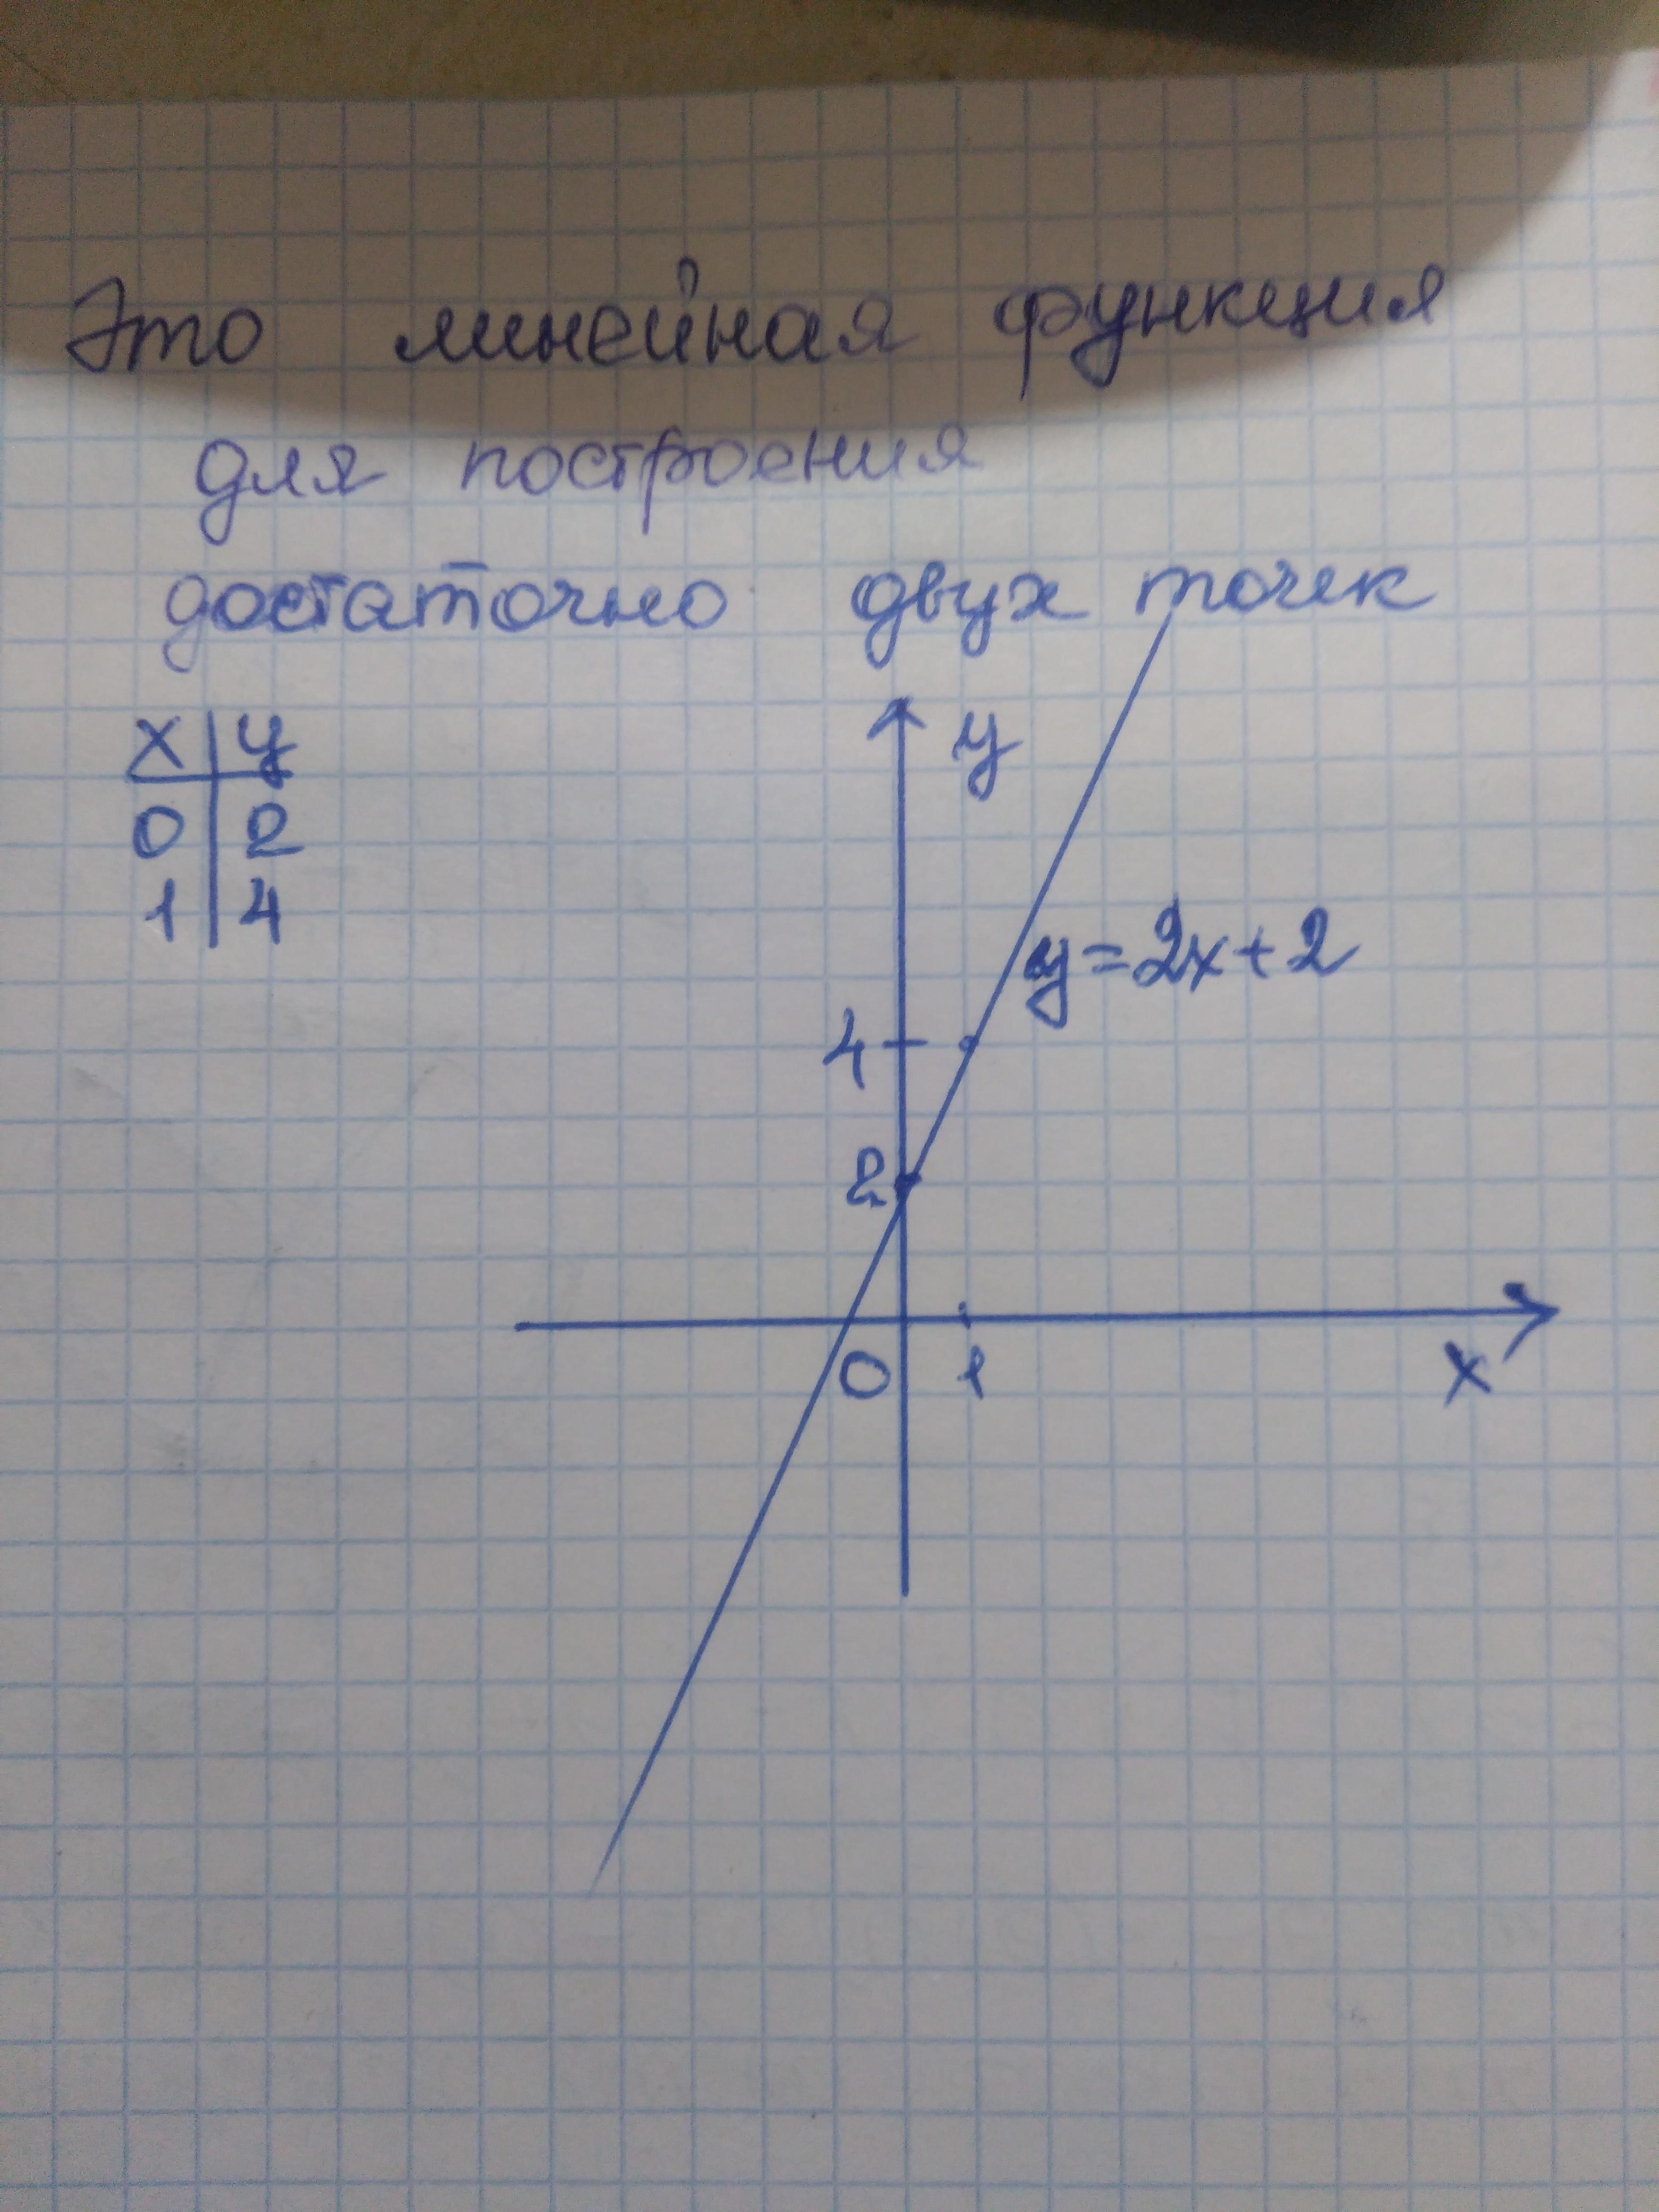 Это линейная функция
для построения
достаточно двух точек
x | y
0 | 2
1 | 4
y
y = 2x + 2
4
2
0 1 x